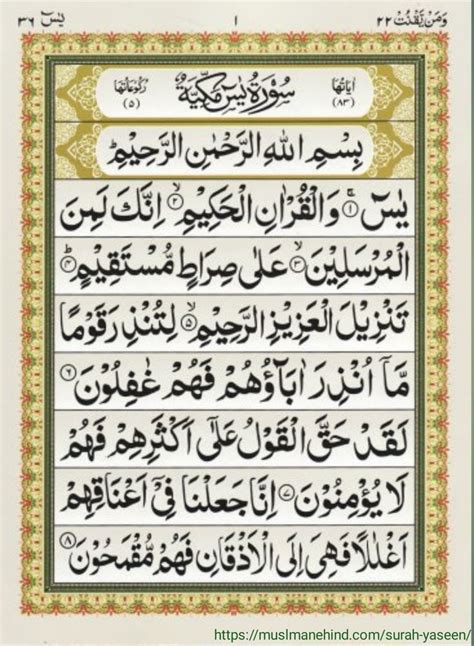 وَمَنْ يَّقْنُتْ ٢٢ ١ يٰسٓ ٣٦
اٰيَاتُهَا (٨٣) سُوْرَةُ يٰسٓ مَكِّيَّةٌ رُكُوْعَاتُهَا (٥)
بِسْمِ اللّٰهِ الرَّحْمٰنِ الرَّحِيْمِ
يٰسٓ ۝١ وَالْقُرْاٰنِ الْحَكِيْمِ ۝٢ اِنَّكَ لَمِنَ
الْمُرْسَلِيْنَ ۝٣ عَلٰى صِرَاطٍ مُّسْتَقِيْمٍ ۝٤
تَنْزِيْلَ الْعَزِيْزِ الرَّحِيْمِ ۝٥ لِتُنْذِرَ قَوْمًا
مَّآ اُنْذِرَ اٰبَآؤُهُمْ فَهُمْ غٰفِلُوْنَ ۝٦
لَقَدْ حَقَّ الْقَوْلُ عَلٰٓى اَكْثَرِهِمْ فَهُمْ
لَا يُؤْمِنُوْنَ ۝٧ اِنَّا جَعَلْنَا فِيْٓ اَعْنَاقِهِمْ
اَغْلٰلًا فَهِيَ اِلَى الْاَذْقَانِ فَهُمْ مُّقْمَحُوْنَ ۝٨
https://muslmanehind.com/surah-yaseen/